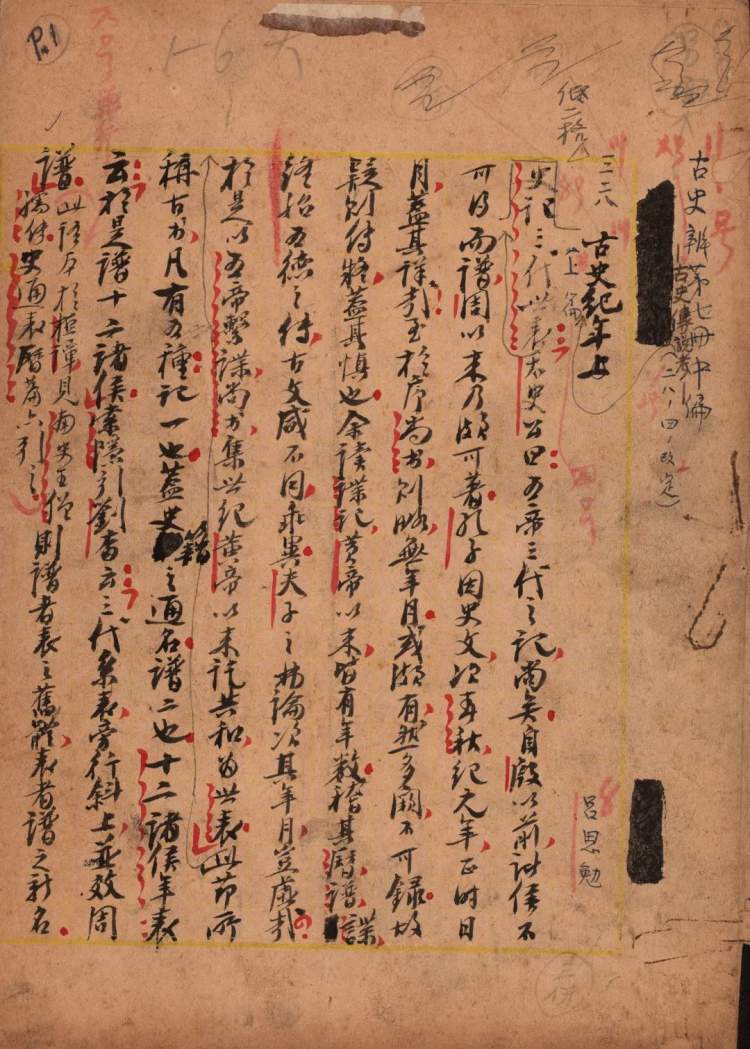 古史辨第七冊中編
古史傳說考（二八、四、改定）
三三八 古史紀年上
上篇
低二格
呂思勉
史記三代世表太史公曰五帝三代之記尚矣自殷以前諸侯不
可得而譜周以來乃頗可著孔子因史文次春秋紀元年正時日
月蓋其詳哉至於序尚書則略無年月或頗有然多闕不可錄故
疑則傳疑蓋其慎也余讀諜記黃帝以來皆有年數稽其曆譜諜
終始五德之傳古文咸不同乖異夫子之弗論次其年月豈虛哉
於是以五帝繫諜尚書集世紀黃帝以來訖共和為世表此節所
稱古書凡有五種記一也蓋史籍之通名譜二也十二諸侯年表
云於是譜十二諸侯索隱引劉杳云三代系表旁行斜上並效周
譜此語本於桓譚見南史王僧孺傳史通表曆篇亦引之則譜者表之舊體表者譜之新名
P.1